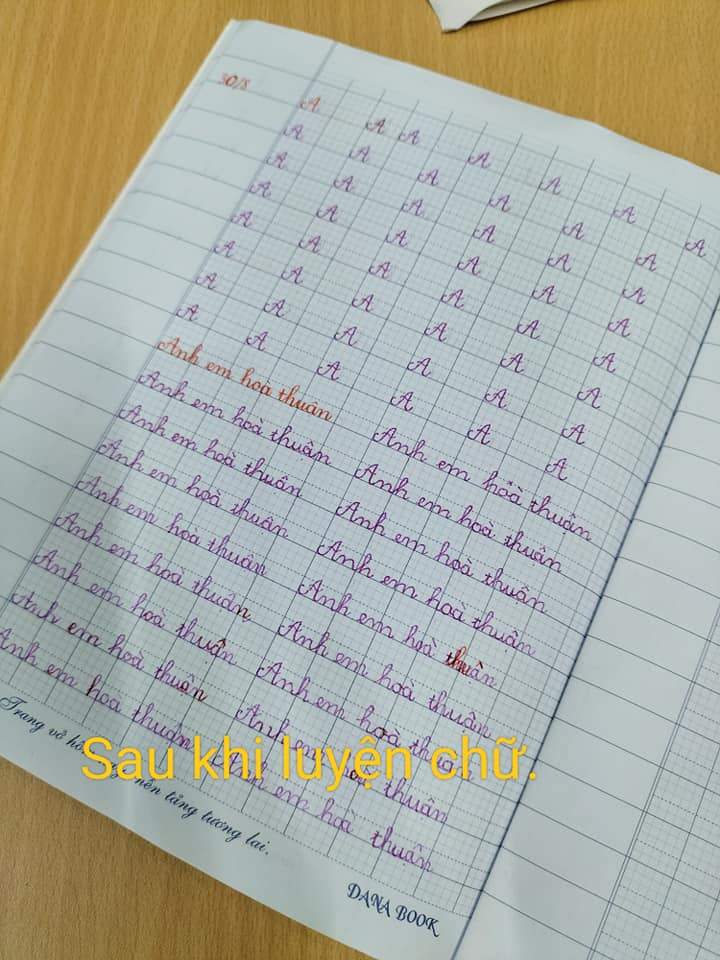 30/8
A A A A A A A
A A A A A A
A A A A A A
A A A A A A
A A A A A A
A A A A A A
A A A A A A
A A A A A A
Anh em hoà thuận Anh em hoà thuận
Anh em hoà thuận Anh em hoà thuận
Anh em hoà thuận Anh em hoà thuận
Anh em hoà thuận Anh em hoà thuận
Anh em hoà thuận Anh em hoà thuận
Anh em hoà thuận Anh em hoà thuận
Anh em hoà thuận Anh em hoà thuận
Anh em hoà thuận Anh em hoà thuận
Anh em hoà thuận Anh em hoà thuận
Sau khi luyện chữ.
Trang vở nền tảng tương lai.
DANA BOOK